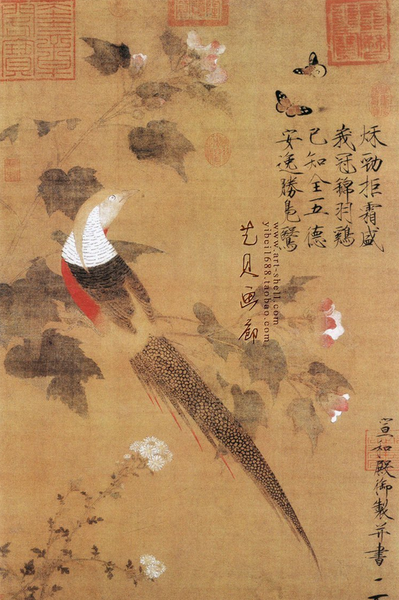 秌勁拒霜盛
峩冠錦羽鷄
已知全五德
安逸勝鳧鷖
www.art-shell.com
yibei1688.taobao.com
艺贝画廊
宣和殿御製并書